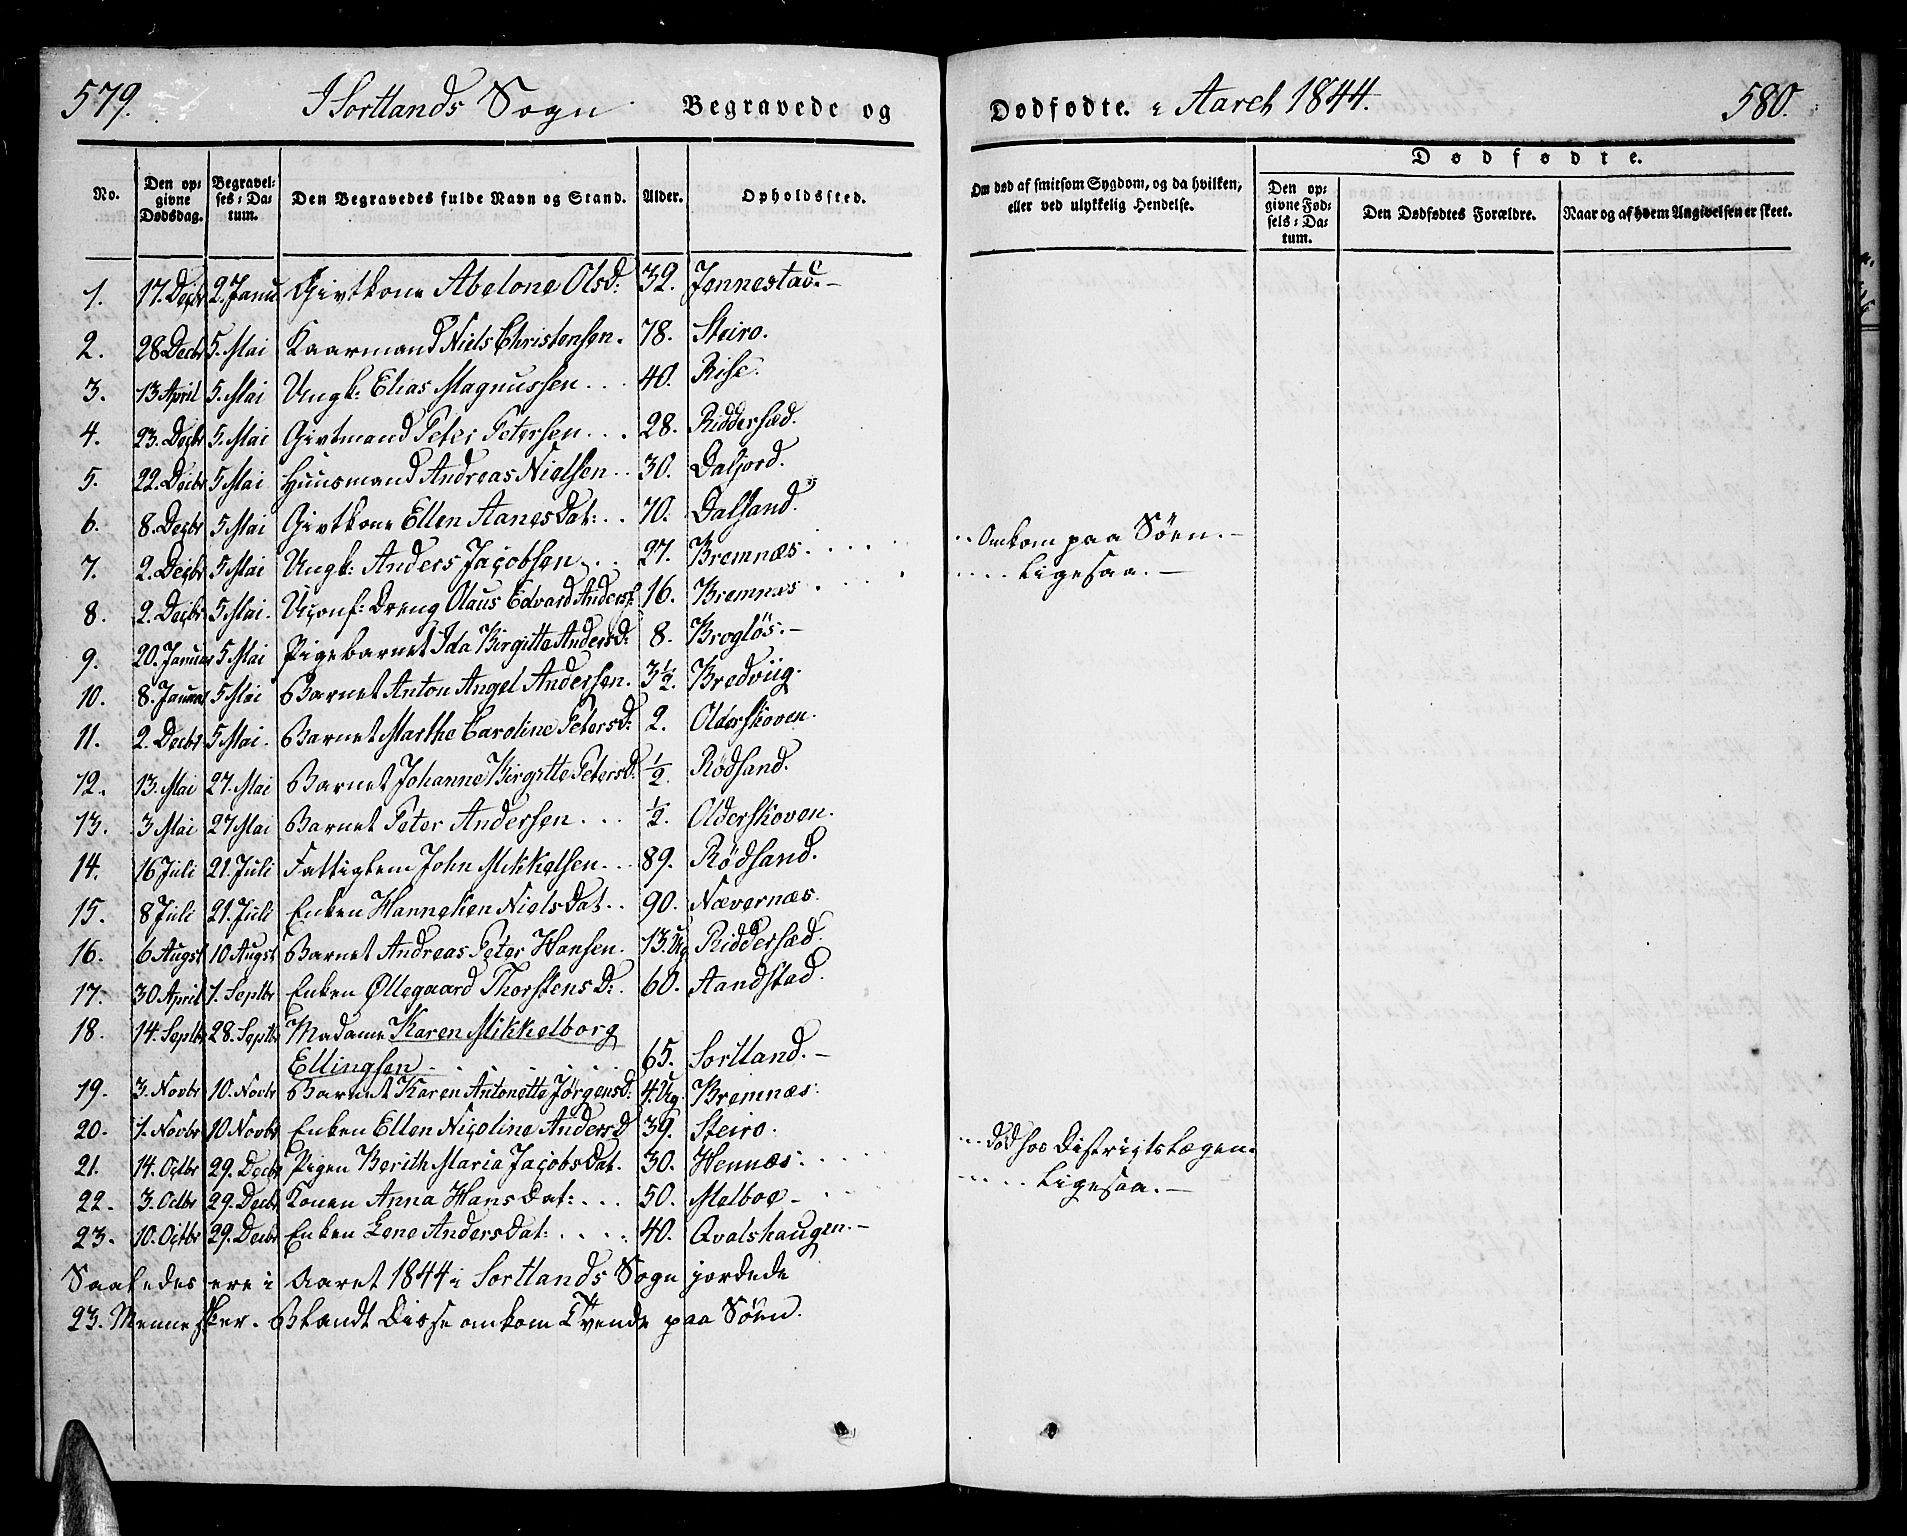 579. I Sortlands Sogn. Begravede og Dødfødte. i Aaret 1844. 580.
Dødfødte.
No. Den opgivne Dødsdag. Begravelses-Datum. Den Begravedes fulde Navn og Stand. Alder. Opholdssted. Om død af smitsom Sygdom, og da hvilken, eller ved ulykkelig Hendelse. Den opgivne Fødsels-Datum. Den Dødfødtes Forældre. Naar og af hvem Angivelsen er skeet.
1. 17. Decbr 2. Janu Givtkone Abelone Olsd: 32. Jennestad.
2. 28 Decbr 5. Mai Kaarmand Niels Christensen. 78. Steiro.
3. 13 April 5. Mai Ungk: Elias Magnussen... 40. Rise.
4. 23. Decbr 5. Mai Givtmand Peter Petersen... 28. Riddersæd.
5. 22. Decbr 5 Mai Huusmand Andreas Nielsen.. 30. Dalfjord.
6. 8. Decbr 5 Mai Givtkone Ellen Aanes Dat:.. 70. Dalsand.
7. 2. Decbr 5 Mai Ungk: Anders Jacobsen... 27. Bremnæs.... Omkom paa Søen.
8. 2. Decbr 5 Mai. Uconf: Dreng Olaus Edvard Anders: 16. Bremnæs.... Ligesaa.
9. 20. Januar 5 Mai Pigebarnet Ida Birgitte Andersd: 8. Brogløs.
10. 8. Januar 5 Mai Barnet Anton Angel Andersen. 3½. Bredviig.
11. 2. Decbr 5 Mai. Barnet Marthe Caroline Petersd: 2. Olderskoven.
12. 13. Mai 27. Mai Barnet Johanne Birgitte Petersd: ½. Rødsand.
13. 3 Mai 27 Mai Barnet Peter Andersen... ½. Olderskoven.
14. 16 Juli 21. Juli Fattiglem John Mikkelsen... 89. Rødsand.
15. 8 Juli 21. Juli Enken Hanneken Niels Dat.. 90. Nævernæs.
16. 6 Augst 10 Augst Barnet Andreas Peter Hansen. 13. Ug Riddersæd.
17. 30 April 1. Septbr Enken Øllegaard Thorstens D:. 60. Aandstad.
18. 14. Septbr 28. Septbr Madame Karen Mikkelborg
Ellingsen..... 65. Sortland.
19. 3. Novbr 10. Novbr Barnet Karen Antonette Jørgensd: 4. Ug. Bremnæs.
20. 1. Novbr 10 Novbr Enken Ellen Nicoline Andersd 39. Steiro.
21. 14. Octbr 29. Decbr Pigen Berith Maria Jacobs Dat. 30. Hennæs.... død hos Distrigtslægen.
22. 3. Octbr 29. Decbr Konen Anna Hans Dat:... 50. Melboe.... Ligesaa.
23. 10. Octbr 29. Decbr Enken Lene Anders Dat:.... 40. Qvalshaugen.
Saaledes ere i Aaret 1844 i Sortlands Sogn jordede
23. Mennesker. Blandt Disse omkom Tvende paa Søen.